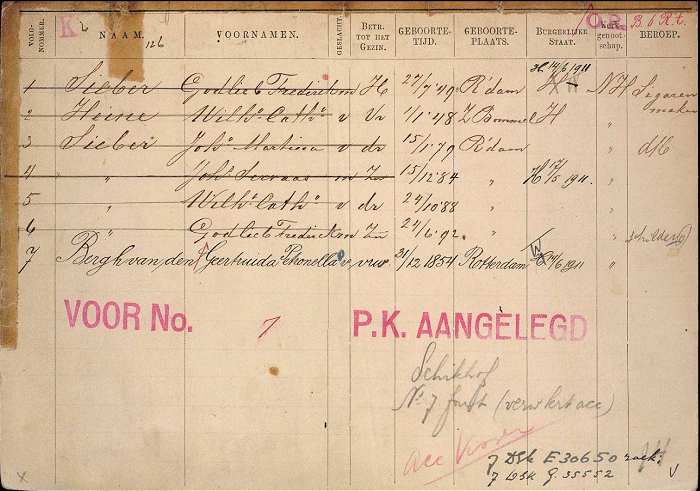 K O.R. B.6 R.t.
VOLG-NOMMER. NAAM. VOORNAMEN. GESLACHT. BETR. TOT HET GEZIN. GEBOORTE-TIJD. GEBOORTE-PLAATS. BURGERLIJKE STAAT. Kerk-genoot-schap. BEROEP.
126
H 14/6 1911
1 Sieber Godlieb Frederik m H 27/7 '49 R'dam NH Sigaren
maker
2 Heine Wilh.a Cath.a v Vr 1/1 '48 Z. Bommel H "
3 Sieber Joh.a Martina v dr 15/1 '79 R'dam " dstb
4 " Joh.s Servaas m Zn 15/12 '84 " H 17/5 1911. "
5 " Wilh.a Cath.a v dr 24/10 '88 " "
6 " Godlieb Frederik m Zn 24/6 '92. " " schilder
7 Bergh van den, Geertruida Petronella v, vrw. 31/12 1854 Rotterdam W H 14/6 1911 "
VOOR No. 7 P.K. AANGELEGD
Schikhof
No 7 (verwerkt acc)
acc
7 Dsb E30650 zoek:
7 Wsk G. 35552 V
X